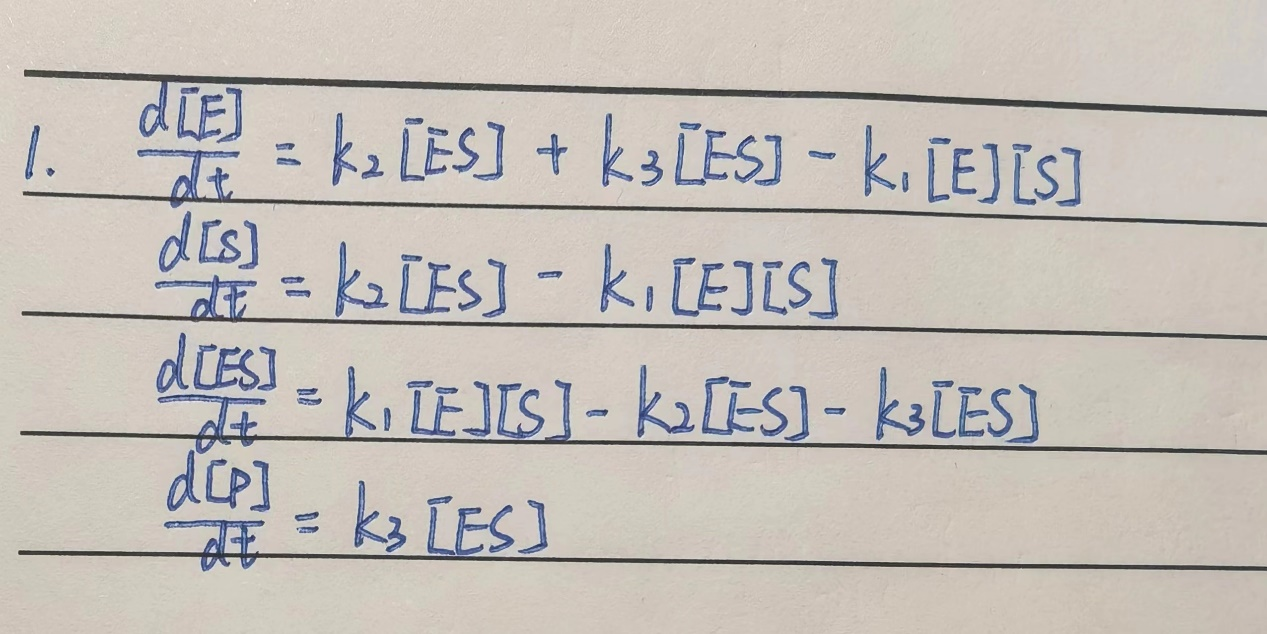 1. d[E]/dt = k₂[ES] + k₃[ES] - k₁[E][S]
d[S]/dt = k₂[ES] - k₁[E][S]
d[ES]/dt = k₁[E][S] - k₂[ES] - k₃[ES]
d[P]/dt = k₃[ES]